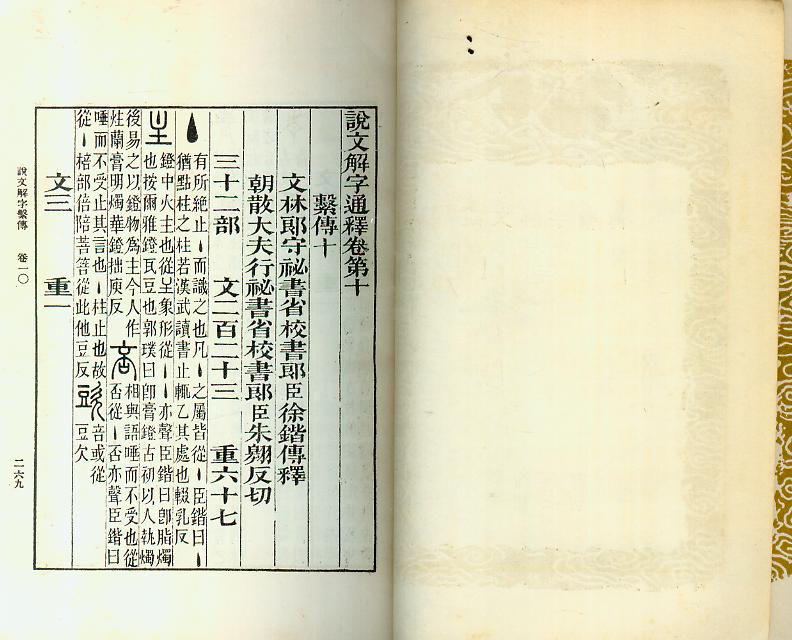 說文解字通釋卷第十
繫傳十
文林郎守祕書省校書郎臣徐鍇傳釋
朝散大夫行祕書省校書郎臣朱翱反切
三十二部 文二百二十三 重六十七
丶
有所絶止丶而識之也凡丶之屬皆從丶臣鍇曰丶
猶點柱之柱若漢武讀書止輒乙其處也輟乳反
主
鐙中火主也從呈象形從丶丶亦聲臣鍇曰卽脂燭
也按爾雅鐙瓦豆也郭璞曰卽膏鐙古初以人執燭
後易之以鐙物爲主今人作
炷蘭膏明燭華鐙拙庾反
相與語唾而不受也從
否從丶否亦聲臣鍇曰
唾而不受止其言也丶柱止也故
從丶棓部倍陪菩從此他豆反
音或從
豆欠
文三 重一
說文解字繫傳 卷一〇
二六九